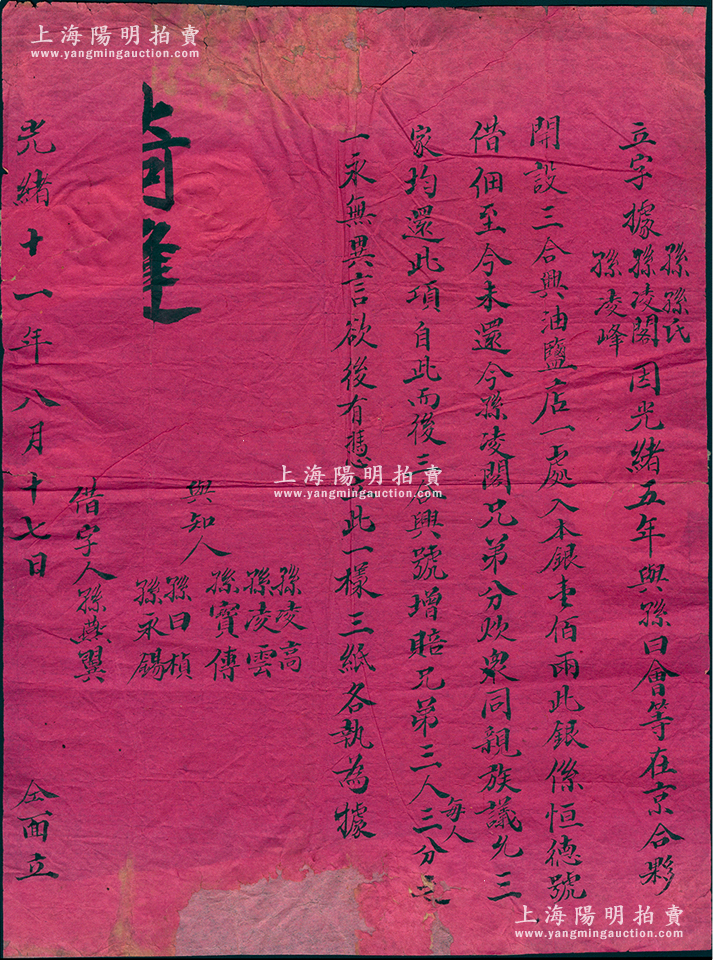 立字據孫孫氏孫凌閣孫凌峰因光緒五年與孫曰會等在京合夥
開設三合興油鹽店一處入本銀壹佰兩此銀係恒德號
借佃至今未還今孫凌閣兄弟分炊衆同親族議允三
家均還此項自此而後三合興號增賠兄弟三人每人三分之
一永無異言欲後有憑立此一樣三紙各執為據
與知人 孫凌高 孫凌雲 孫寶傳 孫曰楨 孫永錫
借字人孫燕翼
光緒十一年八月十七日 仝面立
上海陽明拍賣
www.yangmingauction.com
上海陽明拍賣
www.yangmingauction.com
上海陽明拍賣
www.yangmingauction.com